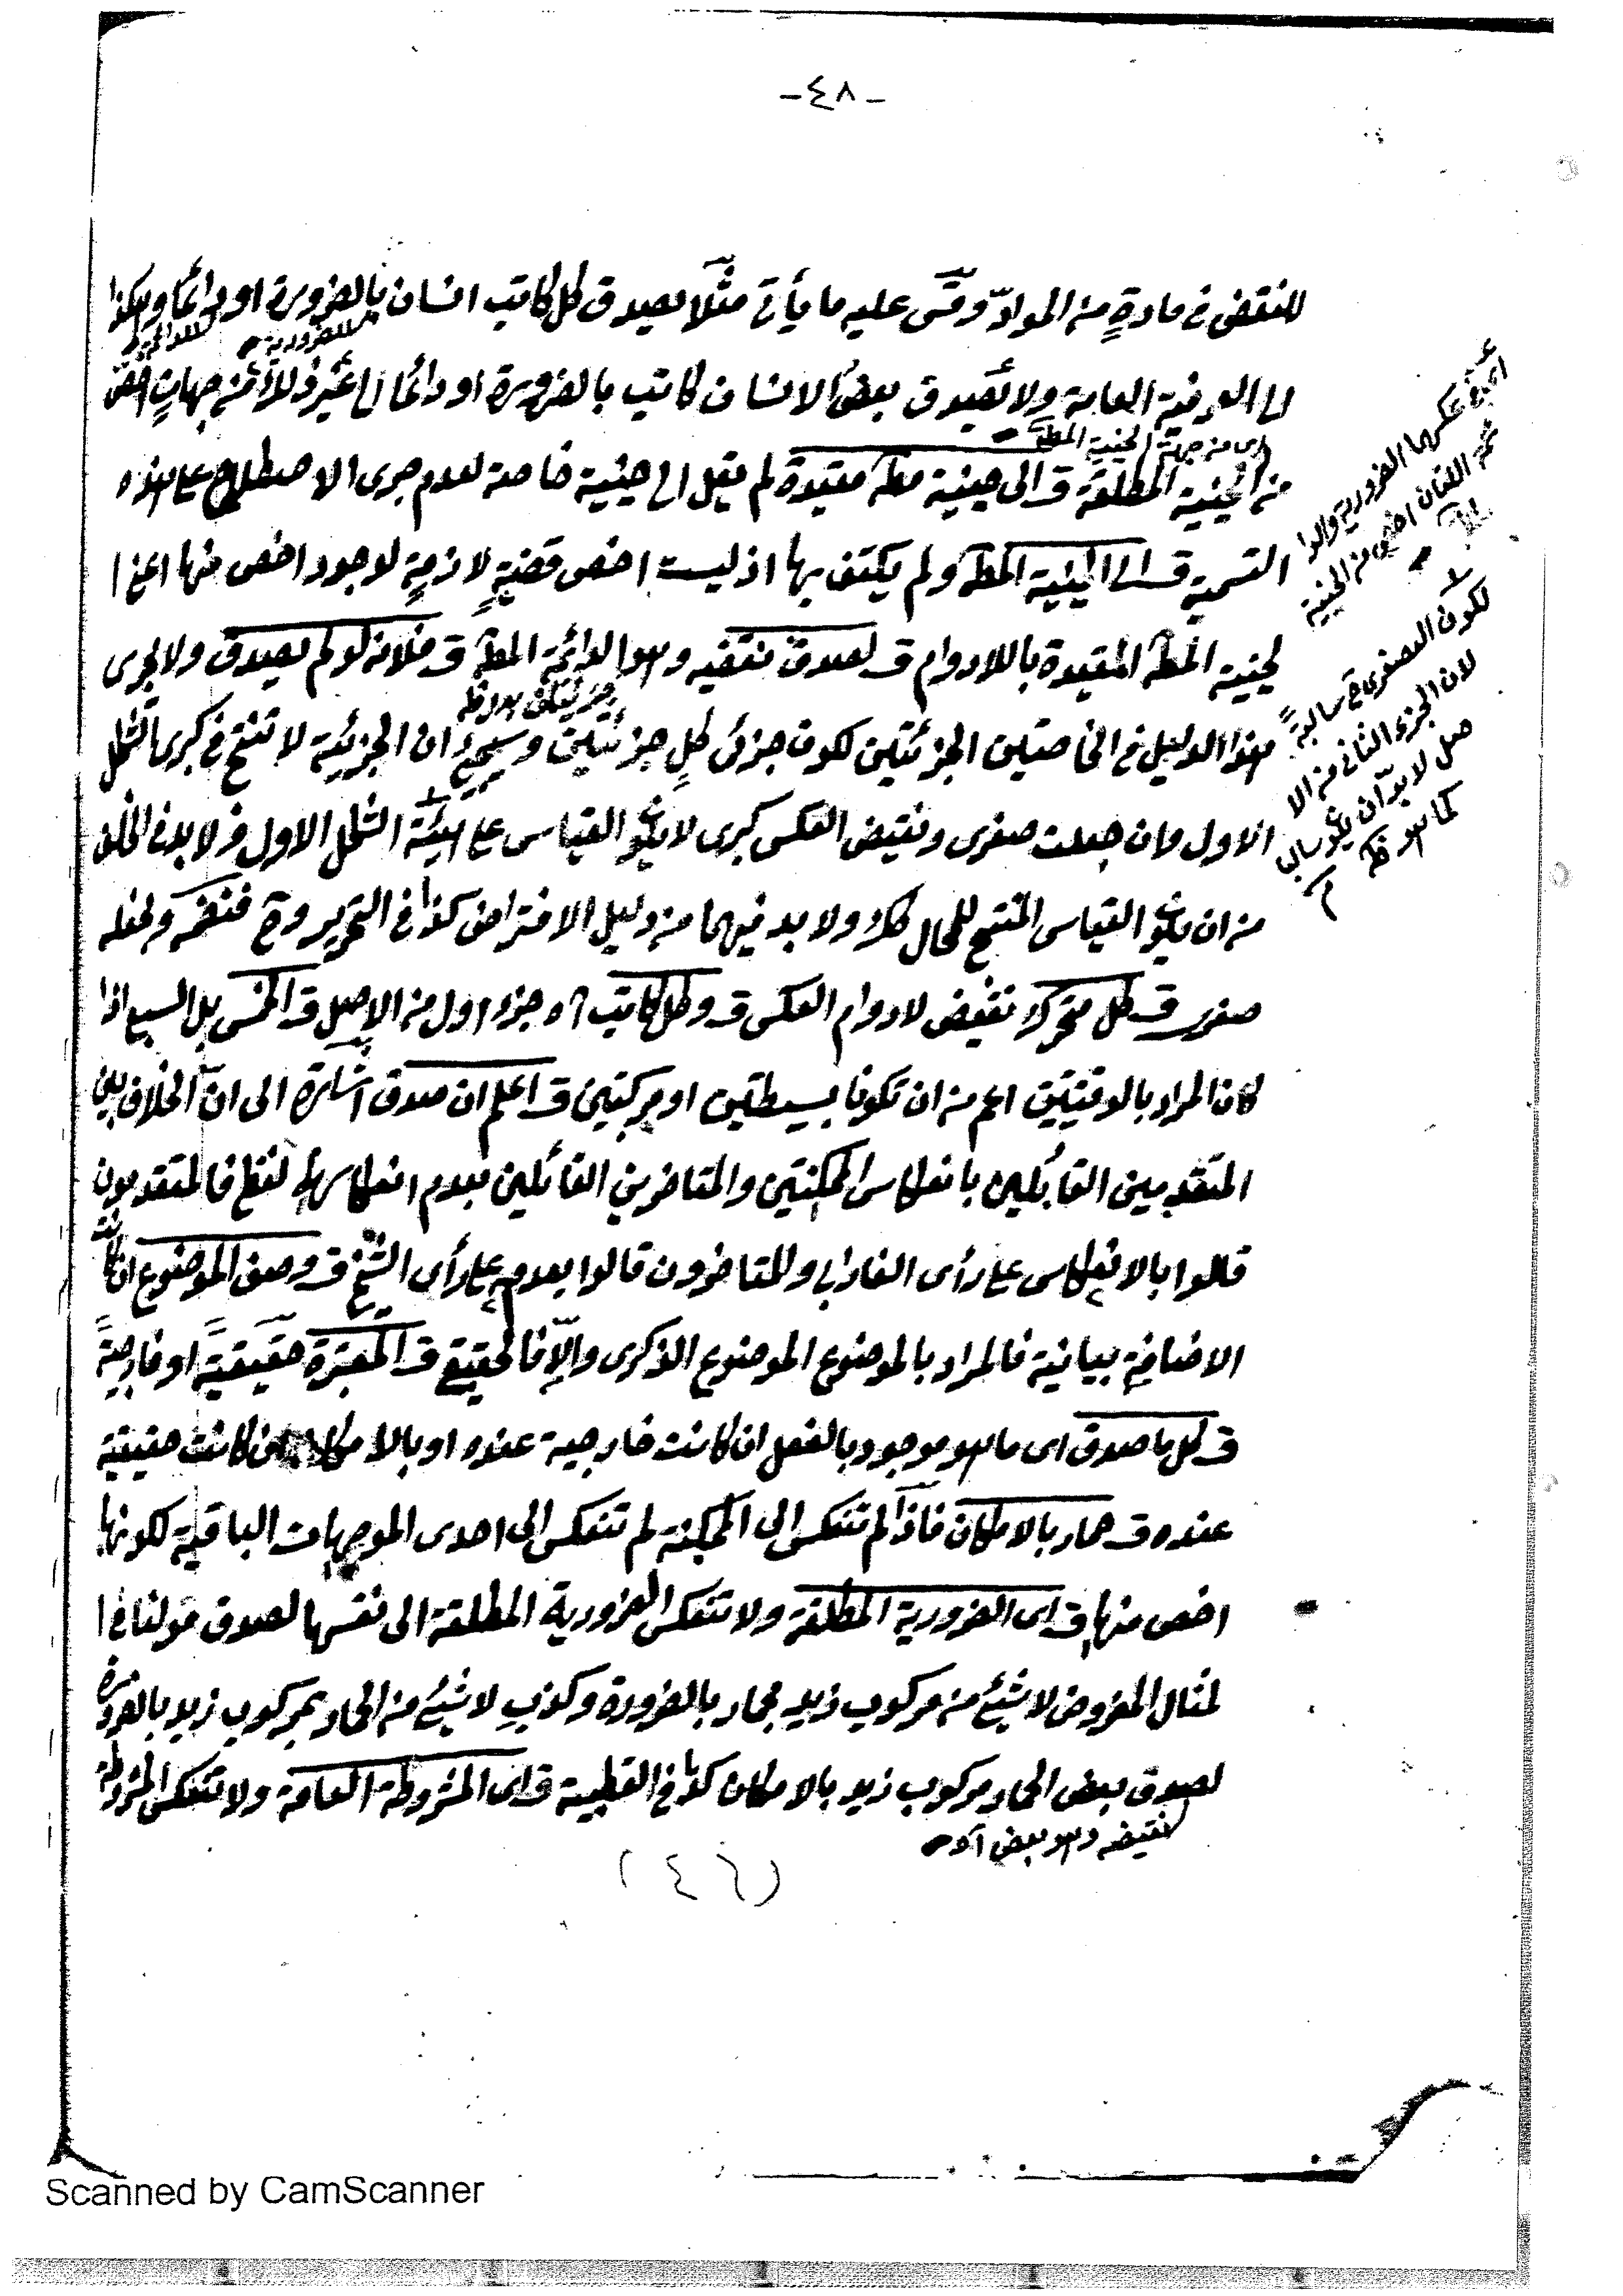 -٤٨-
للنقض فى مادةٍ من الموادّ وقس عليه ما يأتى مثلا يصدق كل كاتب انسان بالضرورة او دائما وهكذا
للضرورية
الى العرفية العامة ولا يصدق بعض الانسان كاتب بالضرورة او دائما الى غير ذلك من جهاتٍ اخص
اى من جهة الحينية المطـ
من الحينية المطلقة قـ الى حينية مطـ مقيدة لم يقل الى حينية خاصة لعدم جرى الاصطلاح على هذه
التسمية قـ الى الحينية المطـ ولم يكتف بها اذ ليست اخص قضيةٍ لازمةٍ لوجود اخص منها اعنى ا
لحينية المطـ المقيدة باللادوام قـ لصدق نقيضه وهو الدائمة المطـ قـ فلانه لو لم يصدق ولا يجرى
هذا الدليل فى الخاصتين الجزئيتين لكون جزئى كلٍ جزئيتين وسيجئ ان الجزئية لا تنتج فى كبرى الشكل
الاول وان جعلت صغرى ونقيض العكس كبرى لا يكون القياس على هيئة الشكل الاول ولا بد فى الخلف
من ان يكون القياس المنتج للمحال كذلك ولا بد فيهما من دليل الافتراض كذا فى التحرير وح فنضمه ونجعله
صغرى قـ كل متحرك نقيض لادوام العكس قـ وكل كاتب آه جزء اول من الاصل قـ الخمس بل السبع اذا
كان المراد بالوقتيتين اعم من ان تكونا بسيطتين او مركبتين قـ اعلم ان صدق اشارة الى ان الخلاف بين
المتقدمين القائلين بانعكاس الممكنتين والمتاخرين القائلين بعدم انعكاسهما لفظى فالمتقدمون
قالوا بالانعكاس على رأى الفارابى والمتاخرون قالوا بعدمه على رأى الشيخ قـ وصف الموضوع ان كانت
الاضافة بيانية فالمراد بالموضوع الموضوع الذكرى والّا فالحقيقى قـ المعتبرة حقيقيةً او خارجيةً
قـ كل ما صدق اى ما هو موجود بالفعل ان كانت خارجية عنده او بالامكان ان كانت حقيقية
عنده قـ حمار بالامكان فاذا لم تنعكس الى الممكنة لم تنعكس الى احدى الموجهات الباقية لكونها
اخص منها قـ اى الضرورية المطلقة ولا تنعكس الضرورية المطلقة الى نفسها لصدق قولنا فى ا
لمثال المفروض لا شئ من مركوب زيد بحمار بالضرورة وكذب لا شئ من الحمار بمركوب زيد بالضرورة
لصدق بعض الحمار مركوب زيد بالامكان كذا فى القطبية قـ اى المشروطة العامة ولا تنعكس المشروطة
نقيضه وهو بعض آه
(٤٦)
لكون الصغرى ح سالبةً
لان الجزء الثانى من الا
صل لا بدّ ان يكون سالـ
كما هو ظـ
Scanned by CamScanner